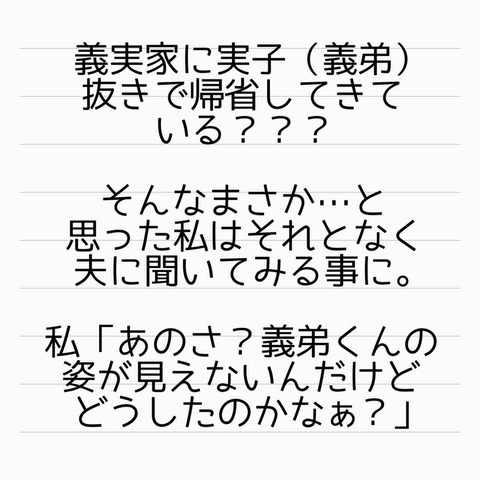 義実家に実子（義弟）
抜きで帰省してきて
いる？？？
そんなまさか…と
思った私はそれとなく
夫に聞いてみる事に。
私「あのさ？義弟くんの
姿が見えないんだけど
どうしたのかなぁ？」